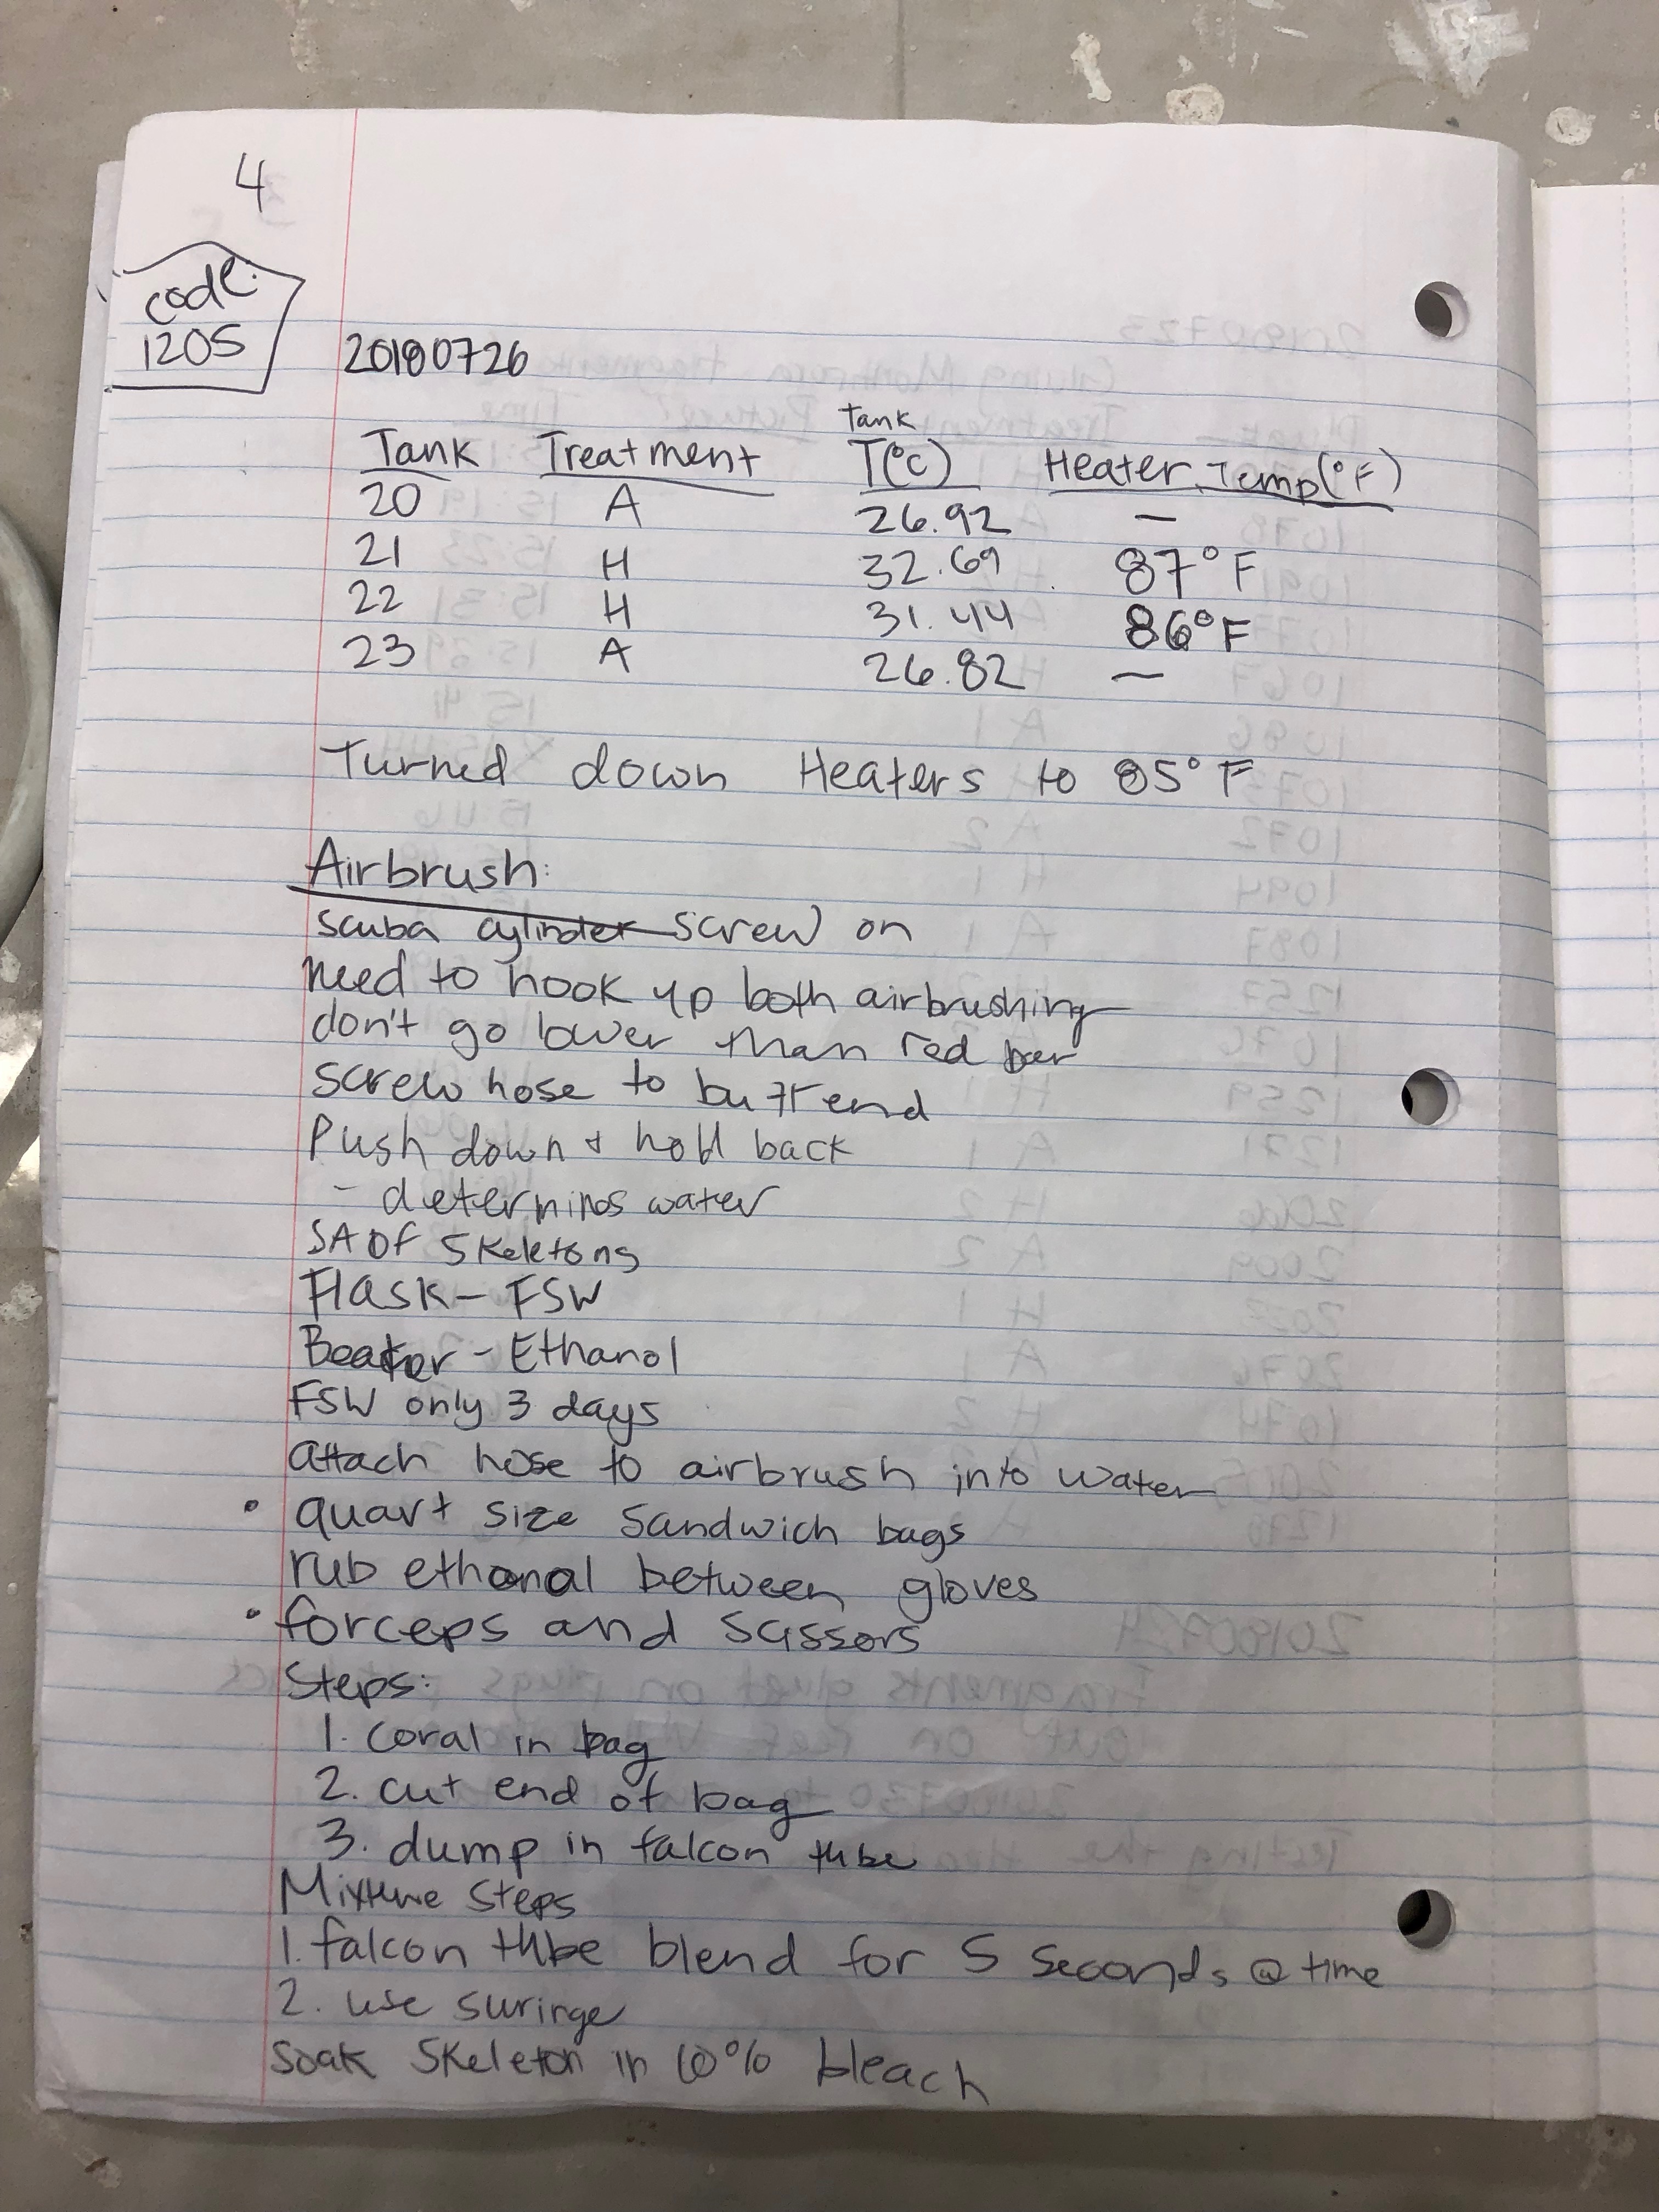 4
code:
1205
20180726
Tank
Tank Treatment T(°C) Heater Temp(°F)
20 A 26.92 —
21 H 32.69 87°F
22 H 31.44 86°F
23 A 26.82 —
Turned down Heaters to 85°F
Airbrush:
scuba cylinder screw on
need to hook up both airbrushing
don't go lower than red bar
screw hose to butt end
Push down + hold back
- determines water
SA OF Skeletons
Flask - FSW
Beaker - Ethanol
FSW only 3 days
attach hose to airbrush into water
• quart size sandwich bags
rub ethanol between gloves
• forceps and scissors
Steps:
1. coral in bag
2. cut end of bag
3. dump in falcon tube
Mixture Steps
1. falcon tube blend for 5 seconds @ time
2. use suringe
soak skeleton in 10% bleach